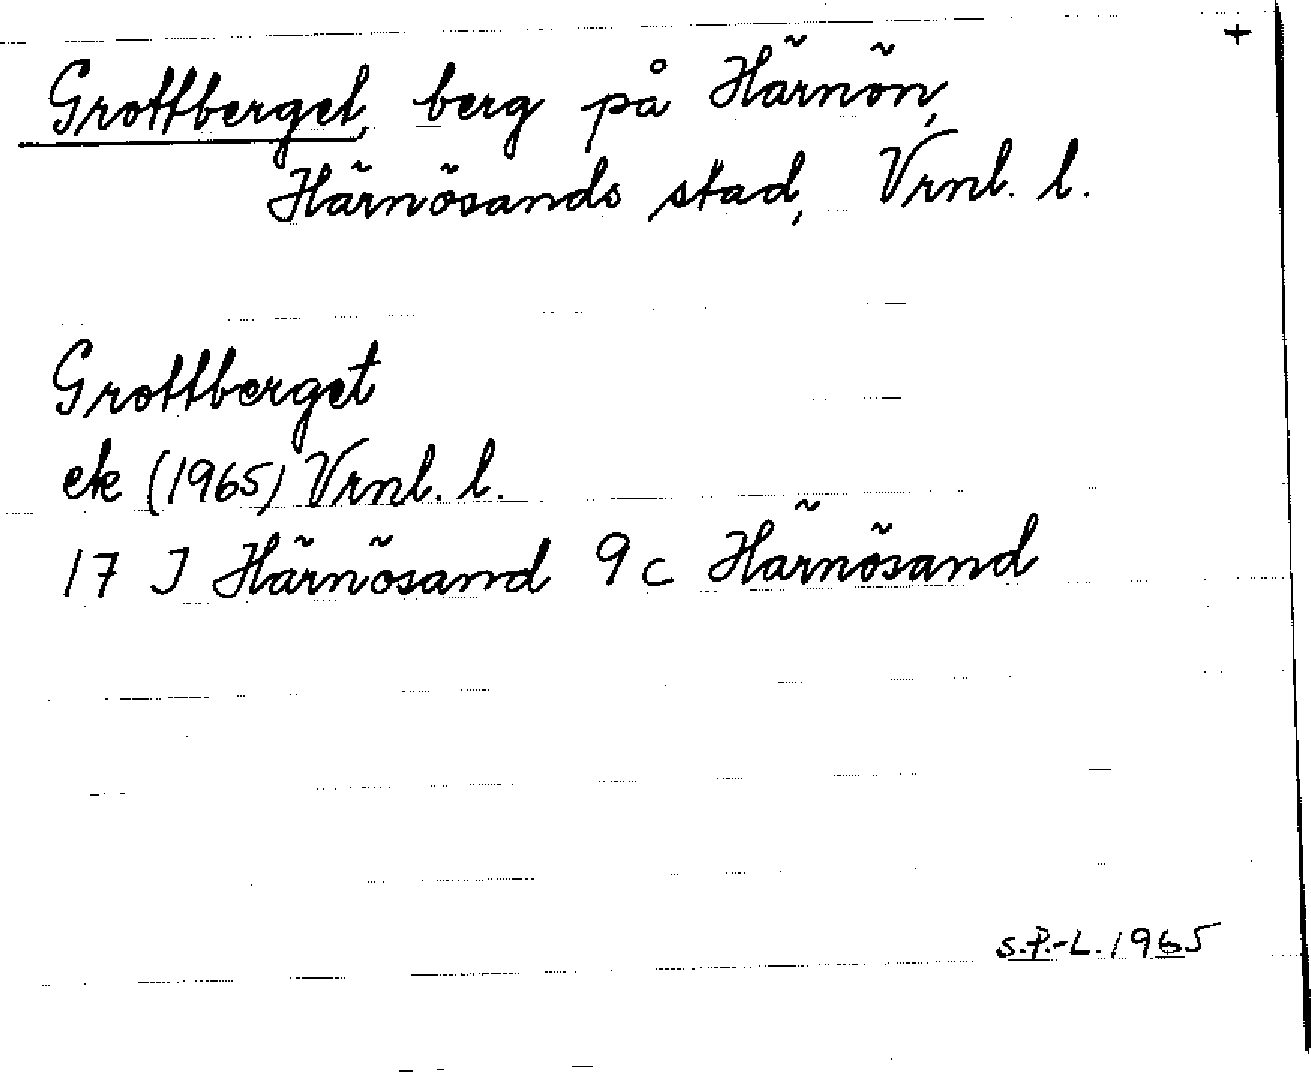 +
Grottberget, berg på Härnön,
Härnösands stad, Vrnl. l.
Grottberget
ek (1965) Vrnl. l.
17 J Härnösand 9 c Härnösand
S.P.-L. 1965